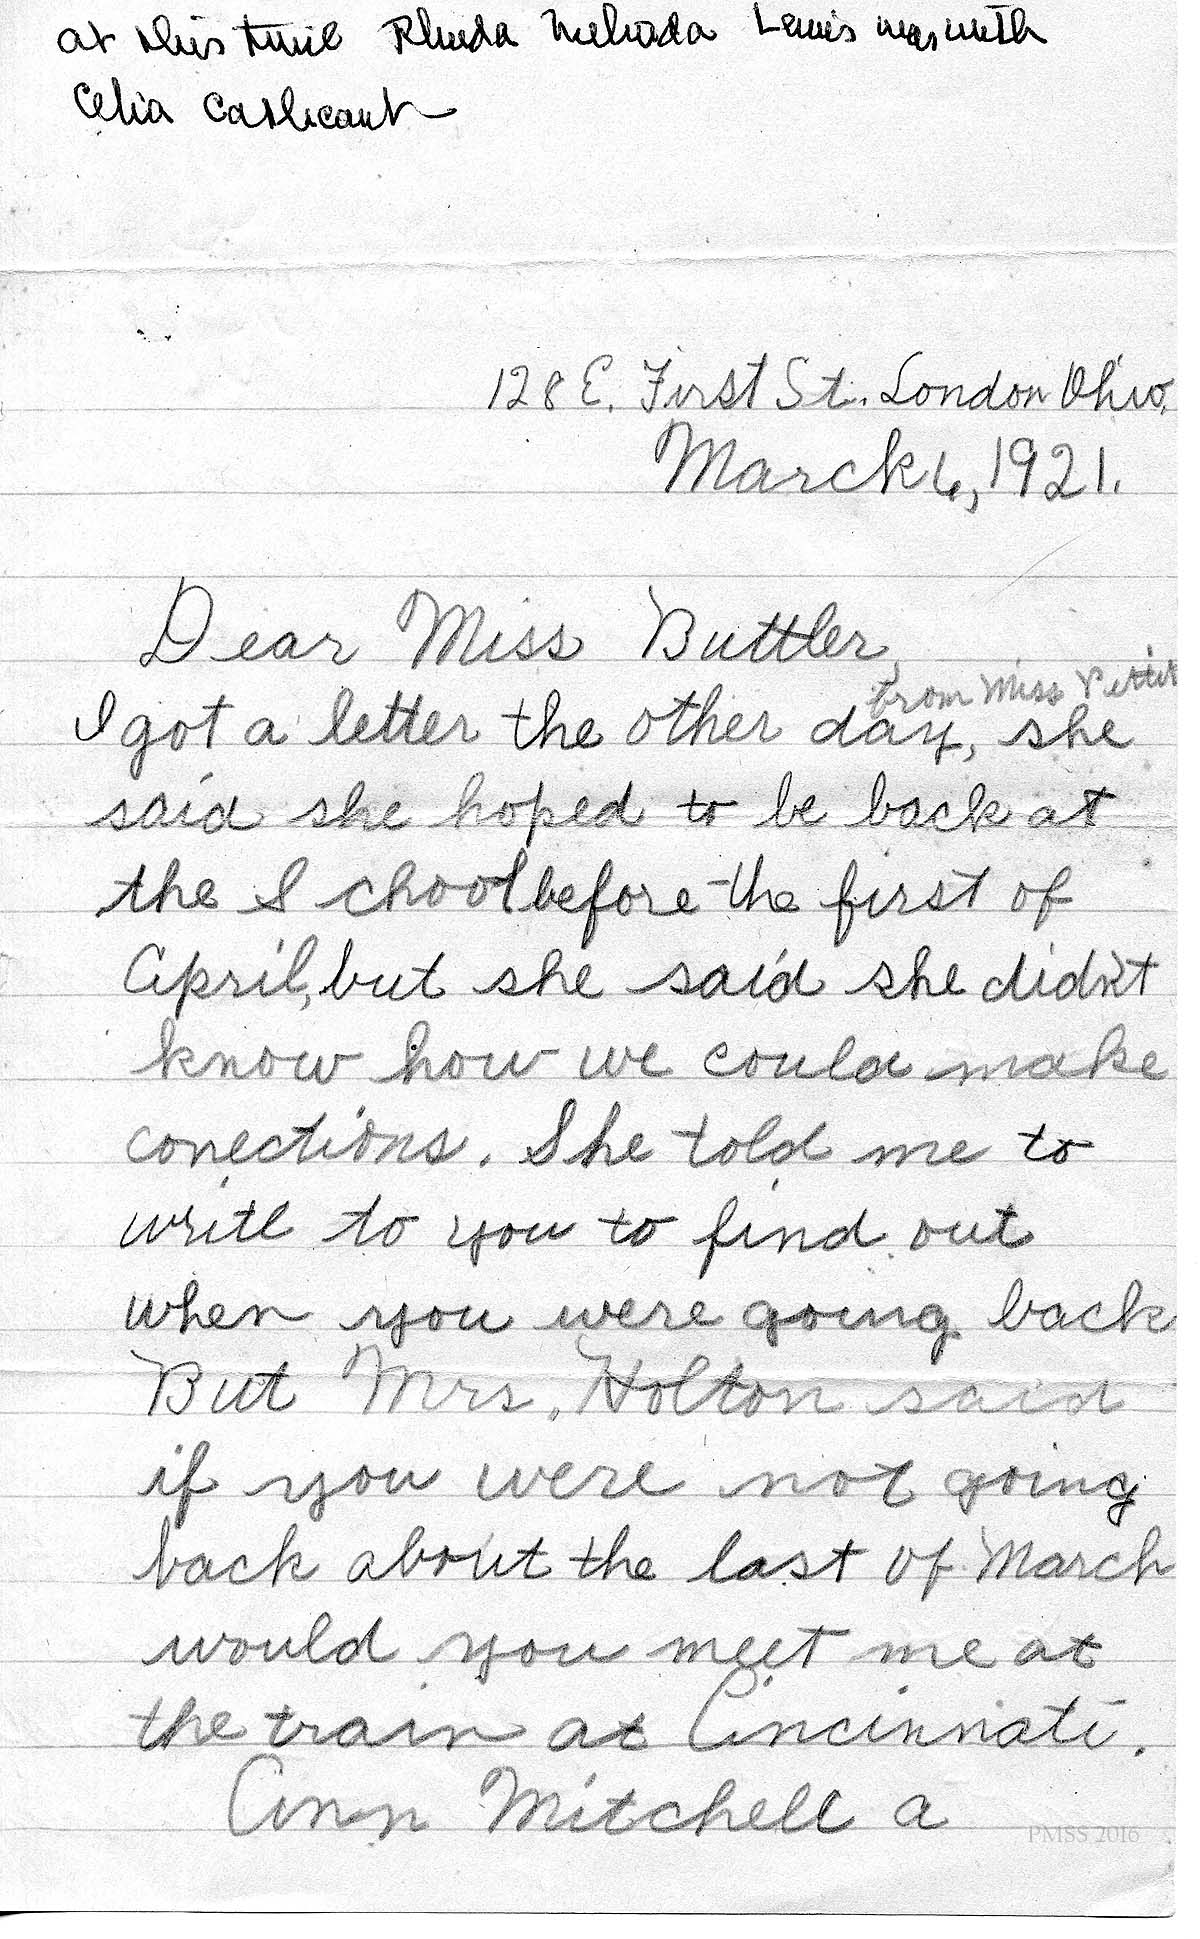 at this time Rhuda Melinda Lewis was with
Celia Cathcart
128 E. First St. London Ohio.
March 6, 1921.
Dear Miss Buttler,
from Miss Pettit
I got a letter the other day, she
said she hoped to be back at
the School before the first of
April, but she said she didn't
know how we could make
conections. She told me to
write to you to find out
when you were going back
But Mrs. Holton said
if you were not going
back about the last of March
would you meet me at
the train at Cincinnati.
Ann Mitchell a
PMSS 2016